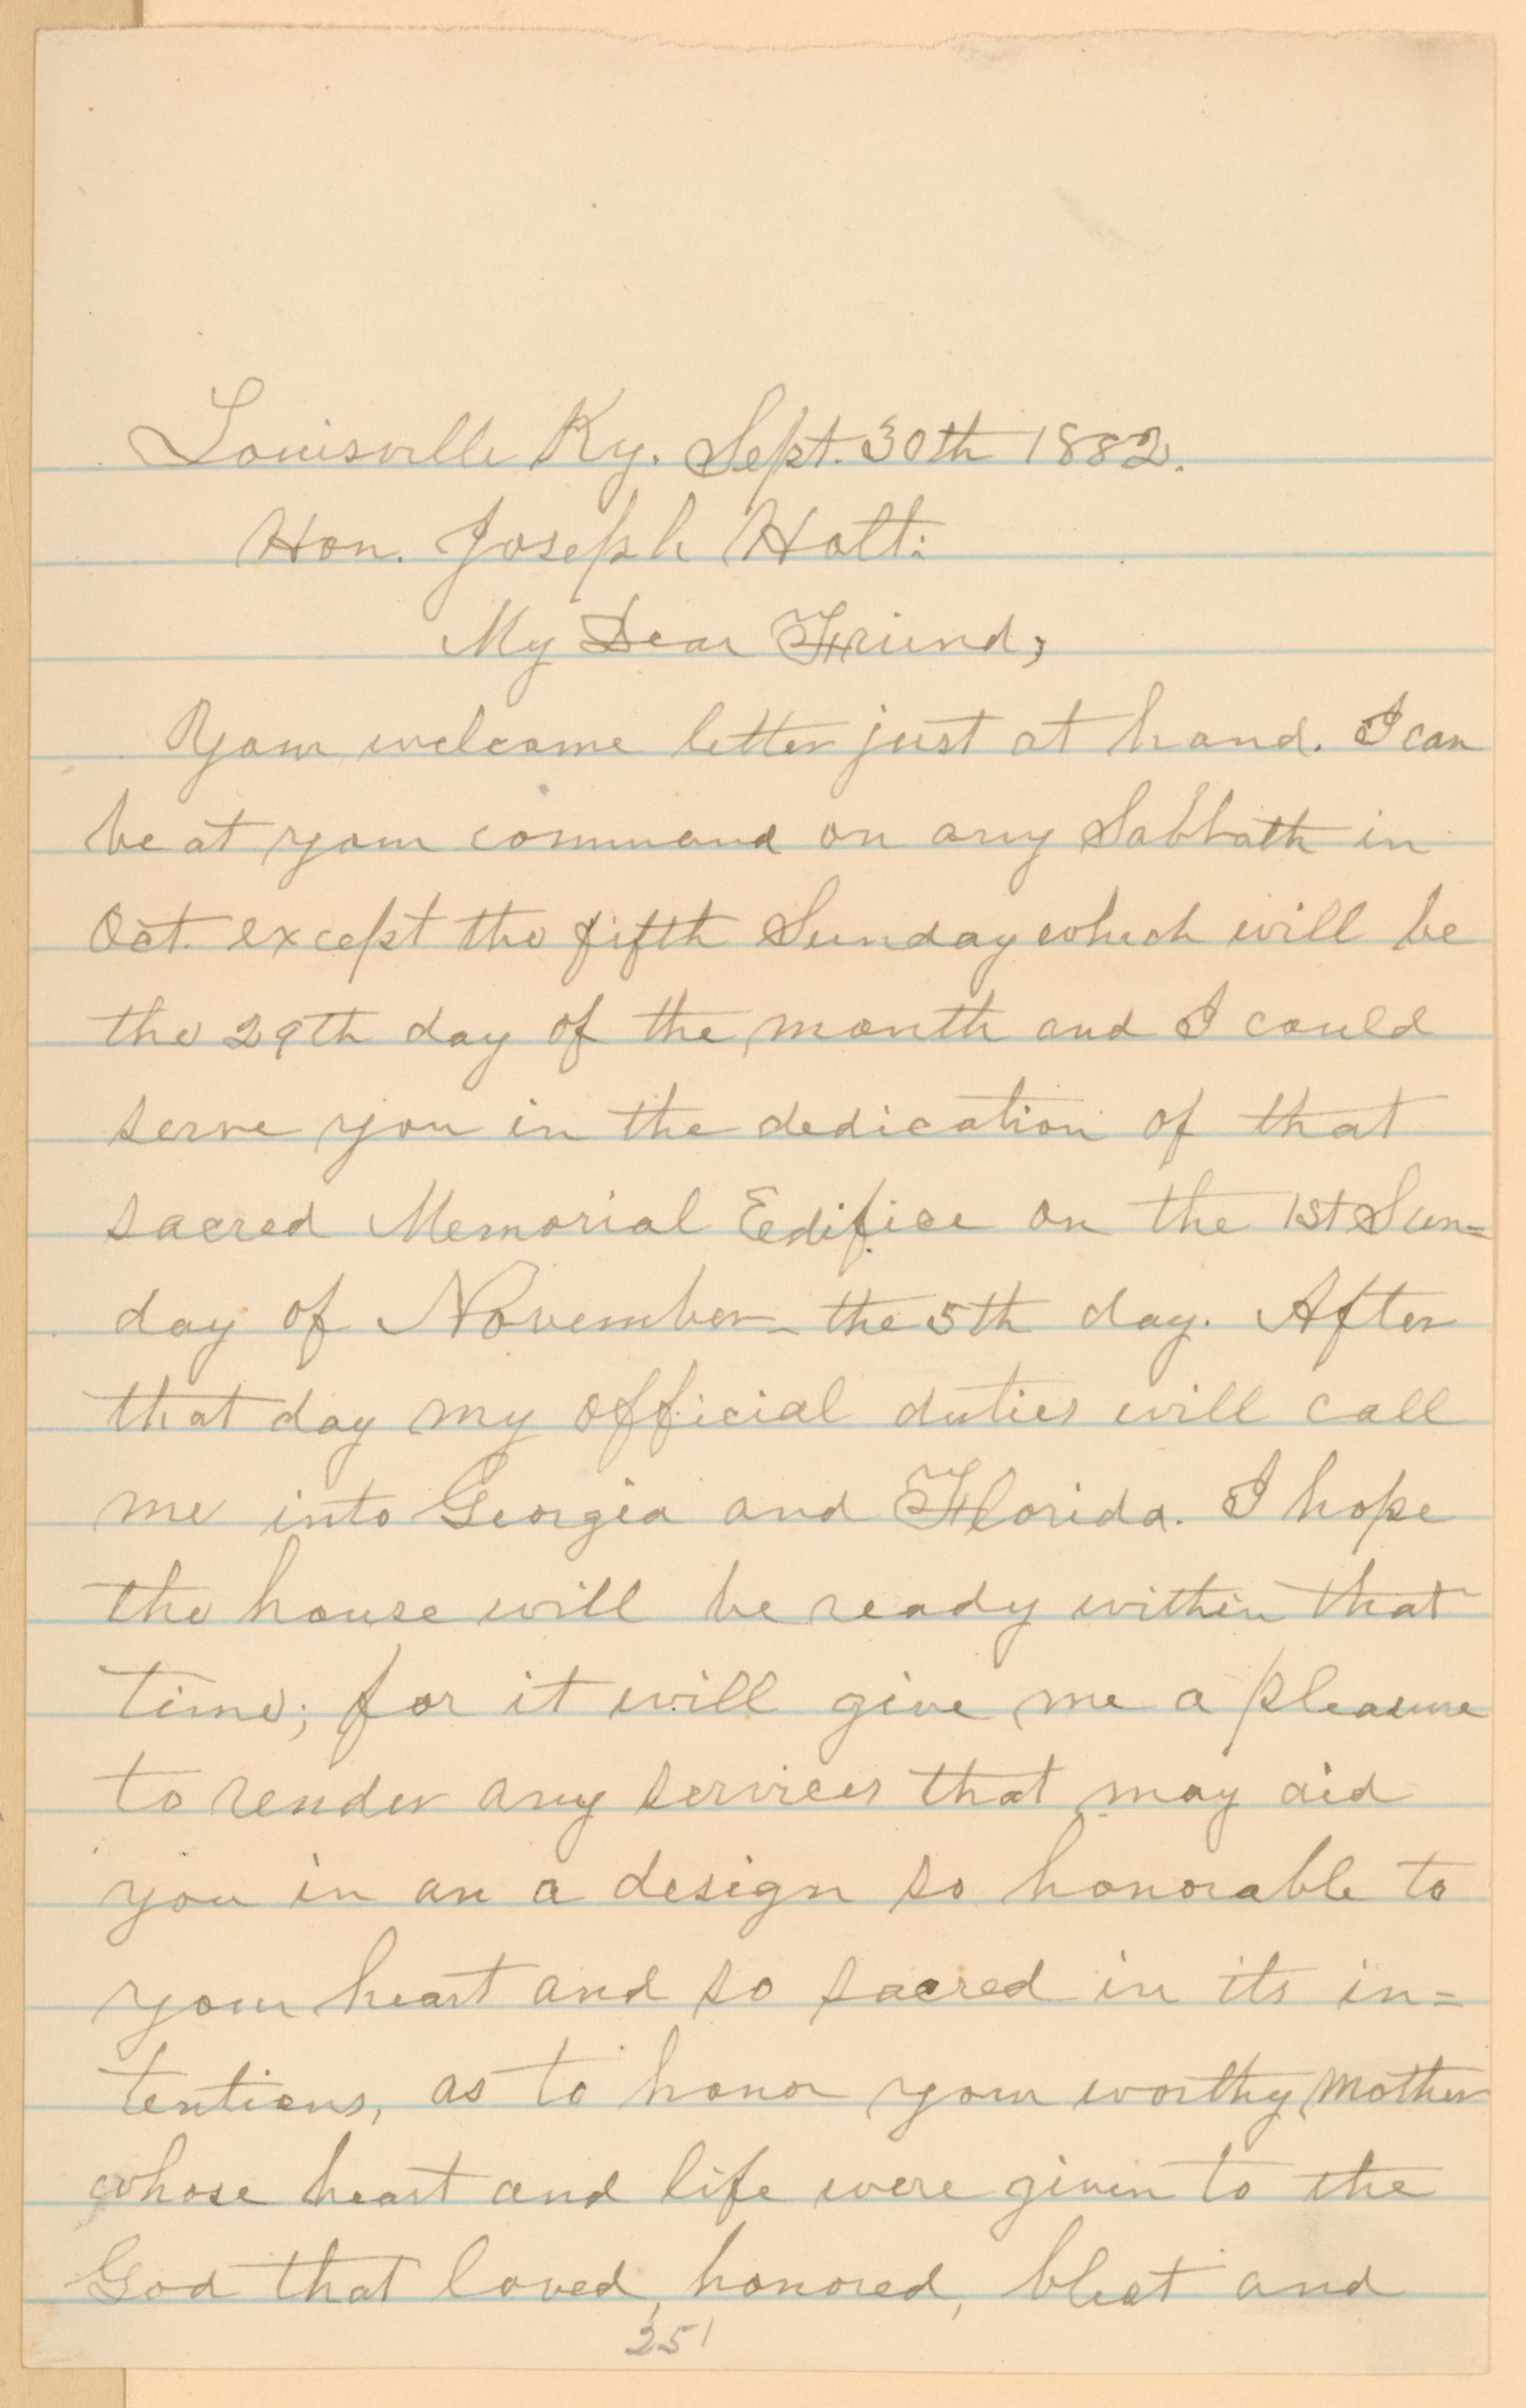 Louisville Ky. Sept. 30th 1882.
Hon. Joseph Holt:
My Dear Friend;
Your welcome letter just at hand. I can
be at your command on any Sabbath in
Oct. except the fifth Sunday which will be
the 29th day of the month and I could
serve you in the dedication of that
sacred Memorial Edifice on the 1st Sun=
day of November - the 5th day. After
that day my official duties will call
me into Georgia and Florida. I hope
the house will be ready within that
time; for it will give me a pleasure
to render any services that may aid
you in an a design so honorable to
your heart and so sacred in its in=
tentions, as to honor your worthy Mother
whose heart and life were given to the
God that loved, honored, blest and
251